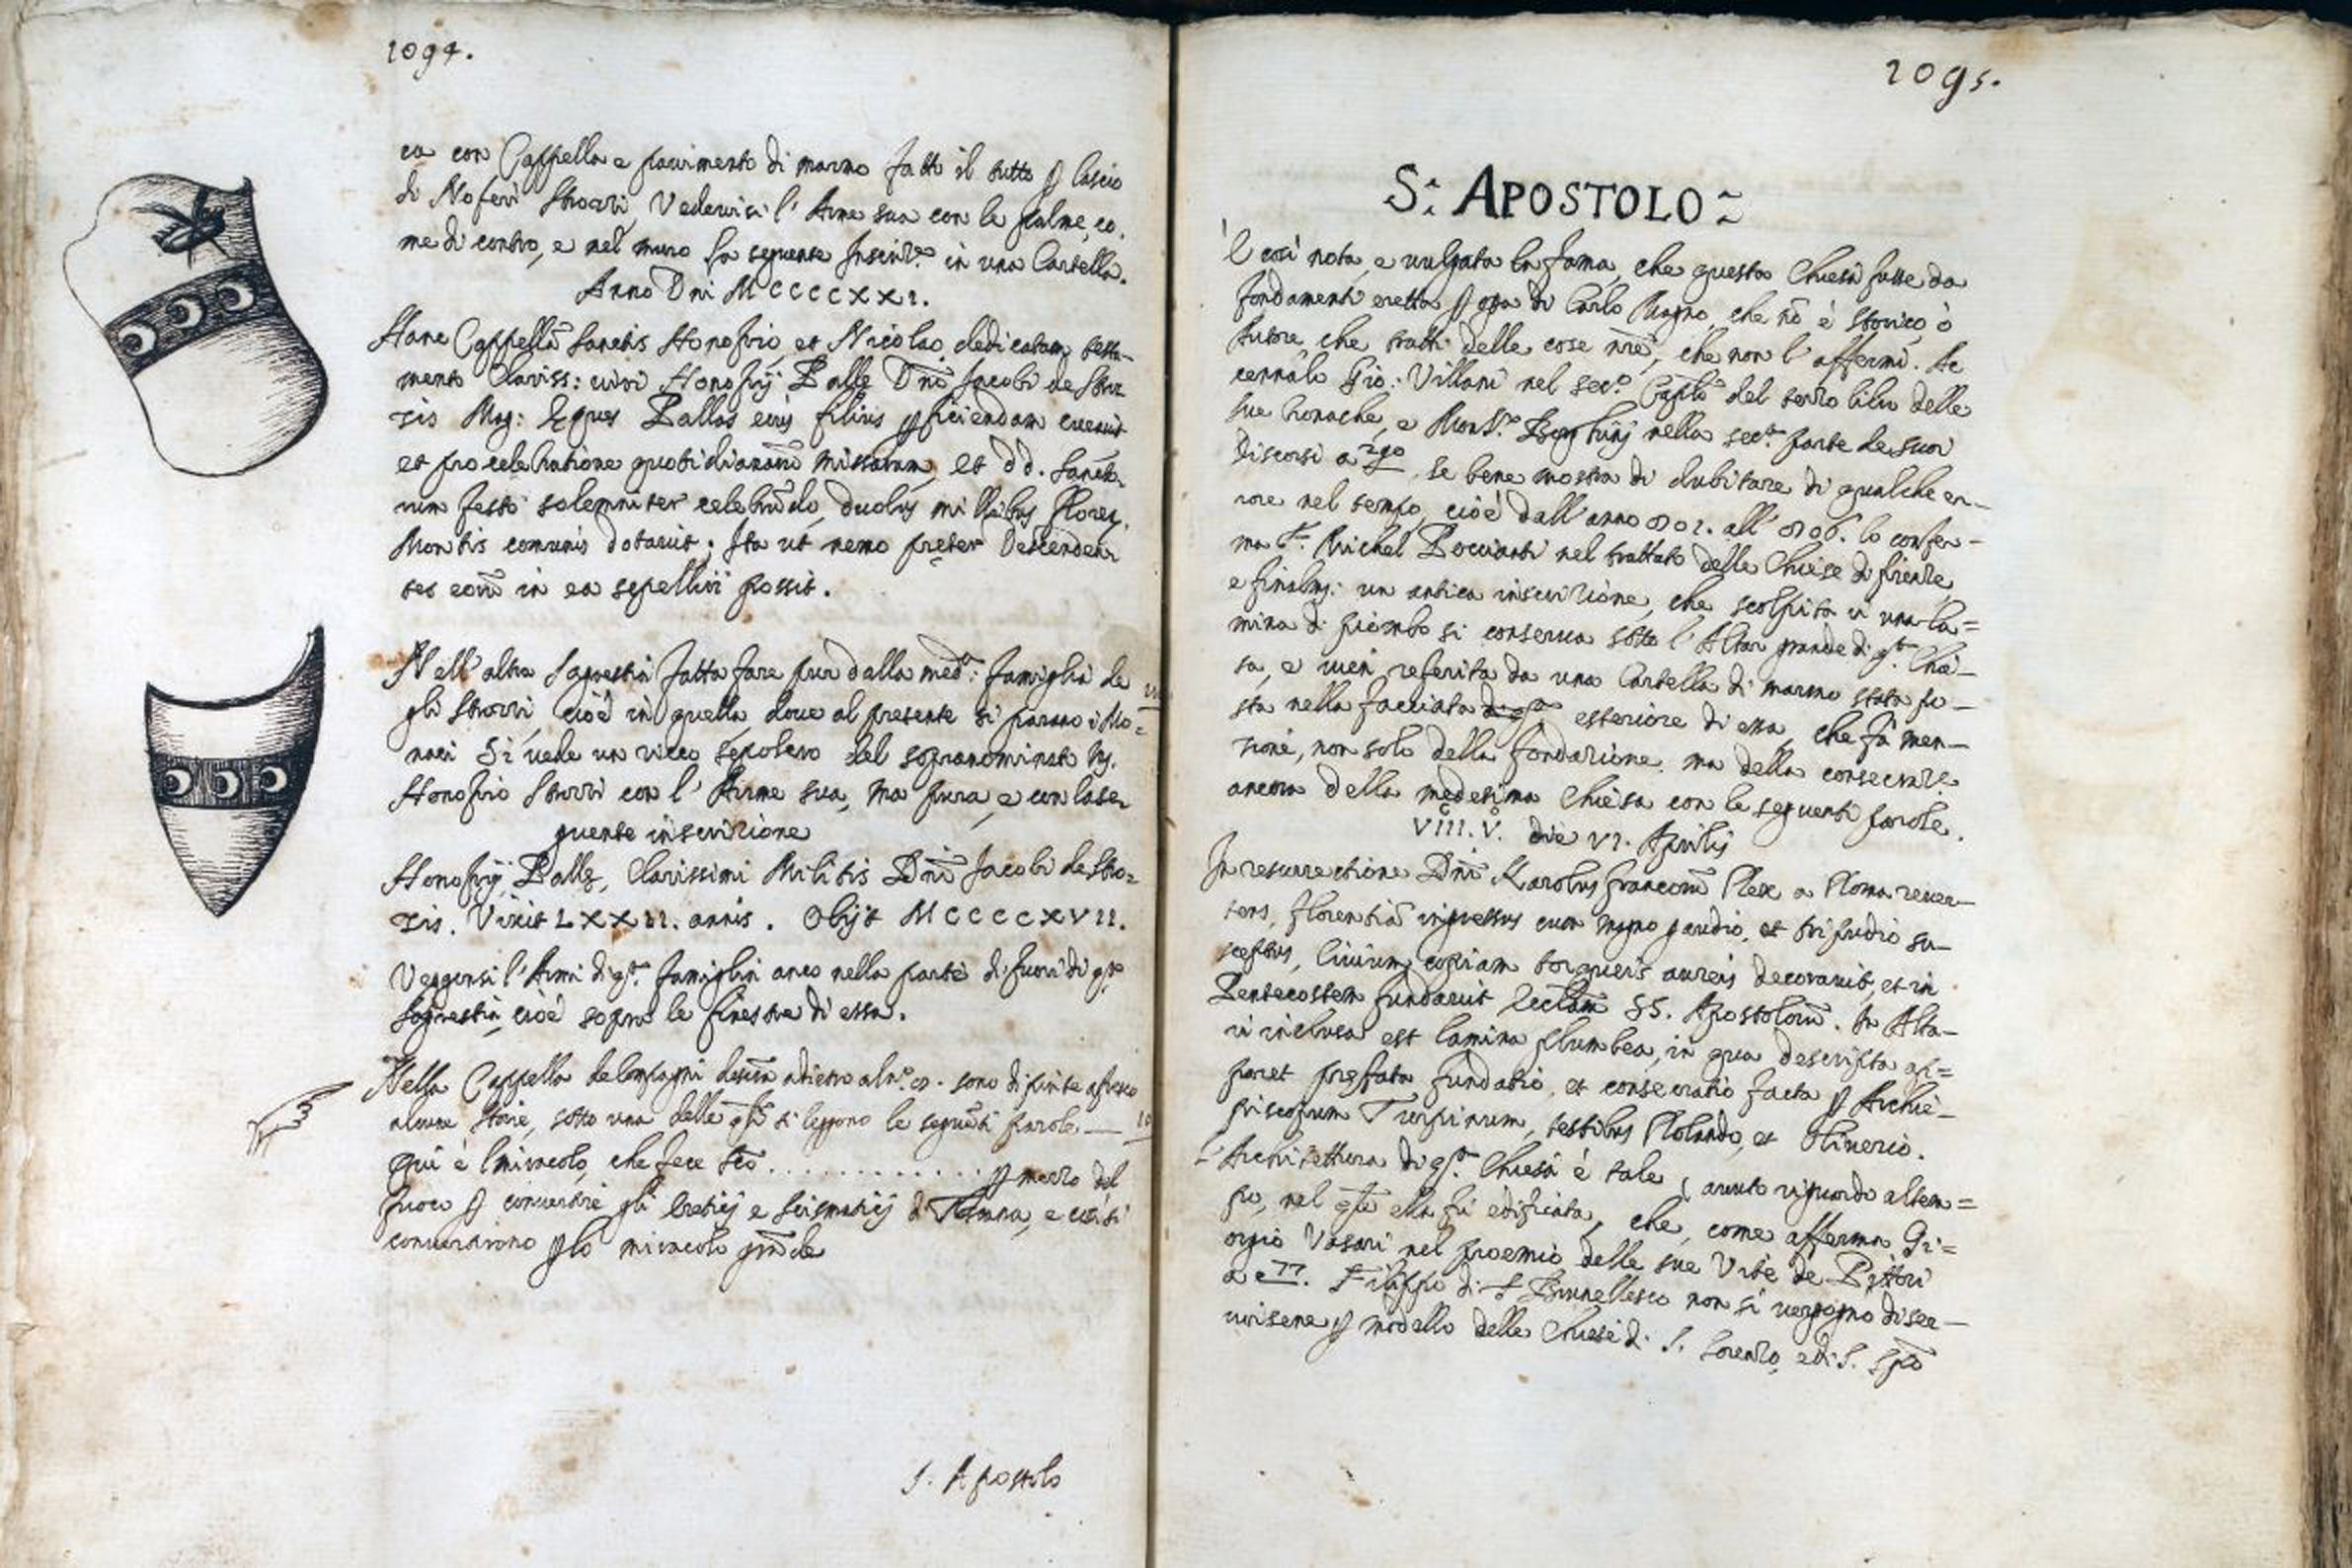 1094.
ca con Cappella e pavimento di marmo fatto il tutto ꝑ lascio
di Noferi Strozzi, Vedervisi l'Arme sua con le palme, co-
me di contro, e nel muro la seguente Inscriz.ᵉ in una Cartella.
Anno Dni MCCCCXXI.
Hanc Cappellā Sanctis Honofrio et Nicolao dedicatam testa-
mento Clariss: viri Honofrij Pallę Dn̄i Jacobi de Stro-
zis Mag: Eques Pallas eius filius ꝑficiendam curavit
et pro celebratione quotidianarū missarum, et dd. Sancto-
rum festo solemniter celebrādo, duobus millibus Floren.
Montis comunis dotavit; Ita ut nemo pręter Descenden-
tes eorū in ea sepelliri possit.
Nell'altra Sagrestia fatta fare pur dalla med.ª famiglia de
gli Strozzi, cioè in quella, dove al presente si parano i Mo-
naci Si vede un ricco sepolcro del sopranominato
Honofrio Strozzi con l'Arme sua, ma pura, e con la se-
guente inscrizione
Honofrij Pallę, Clarissimi Militis Dn̄i Jacobi de Stro-
zis. Vixit LXXII. annis. Obijt MCCCCXVII.
Veggonsi l'Armi di qᵗᵃ famiglia anco nella parte di fuori di qᵗᵃ
Sagrestia, cioè sopra le finestre di essa.
Nella Cappella de Compagni adietro al nº. sono dipinte a fresco
alcune storie, sotto una delle qli si leggono le seguēti parole
Qui è l miracolo, che fece Sto. . . . . . . . . . . . . ꝑ mezzo del
fuoco ꝑ convertire gli eretici e Scismatici e così si
convertirono ꝑ lo miracolo grāde
S. Apostolo
1095.
S: APOSTOLO
È così nota, e vulgata la fama, che questa Chiesa fusse da
fondamenti eretta ꝑ opa di Carlo Magno, che nō è storico, ò
Autore, che tratti delle cose nr̄e, che non l'affermi. Ac
cennalo Gio: Villani nel sec.º Caplo del terzo libro delle
sue Cronache, e Mons.ʳᵉ Borghinj nella sec.ᵈᵃ parte de suoi
Discorsi a 250, se bene mostra di dubitare di qualche er-
rore nel tempo, cioè dall'anno 801. all'806. lo confer-
ma F. Michel Poccianti nel trattato delle Chiese di firenze,
e finalmᵉ: un antica inscrizione, che scolpita i una la=
mina di piombo si conserva sotto l'Altar grande di qᵗᵃ Chie-
sa, e vien referita da una Cartella di marmo stata po-
sta nella facciata esteriore di essa, che fà men-
zione, non solo della fondazione, ma della consecraz.ᵉ
ancora della medesima Chiesa con le seguenti parole.
VIII.V. die VI. Aprilis
In resurrectione Dn̄i Karolus francorū Rex a Roma rever-
tens, florentiā ingressus cum magno gaudio, et tripudio su-
sceptus, Civium copiam torqueis aureis decoravit, et in
Pentecostem fundavit Ecclām SS. Apostolorū. In Alta-
ri inclusa est lamina plumbea, in qua descripta ap=
paret prefata fundatio, et consecratio facta ꝑ Archie-
piscopum Turpinum, testibus Rolando, et Uliverio.
L'Architettura di qᵗᵃ Chiesa è tale (avuto riguardo al tem=
po, nel qle ella fù edificata, che, come afferma Gi=
orgio Vasari nel proemio delle sue Vite de Pittori
a c 77. Filippo di S. Brunellesco non si vergognò di ser-
virsene ꝑ modello delle Chiese di S. Lorenzo, e di S. Spō